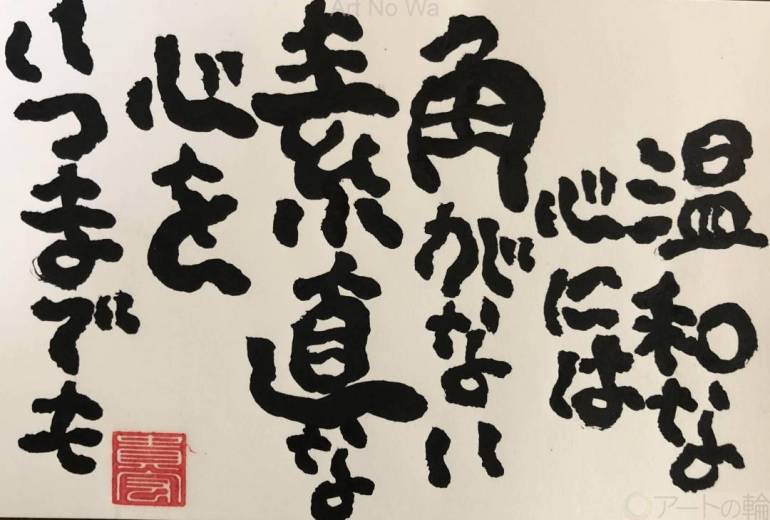 温和な
心には
角がない
素直な
心を
いつまでも
Art No Wa
アートの輪